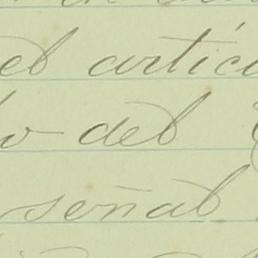 el artícu
o del
señal